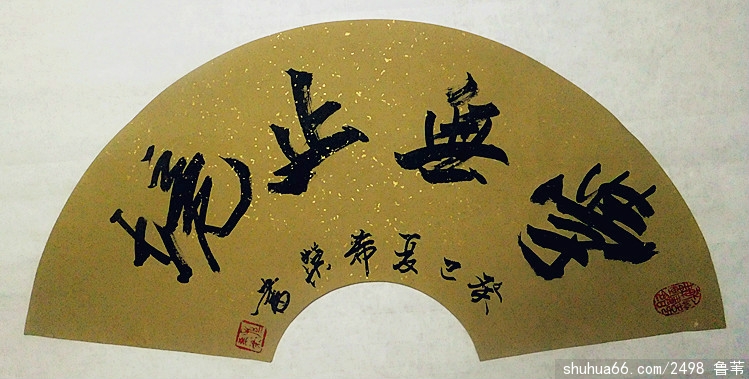 藝無止境
癸巳夏希榮書
shuhua66.com/2498 鲁苇